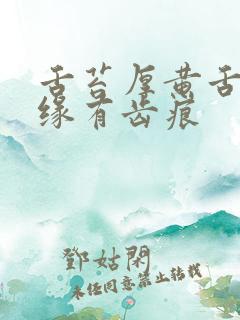 舌苔厚黄舌
缘有齿痕
鄧姑閑
未经同意禁止转载